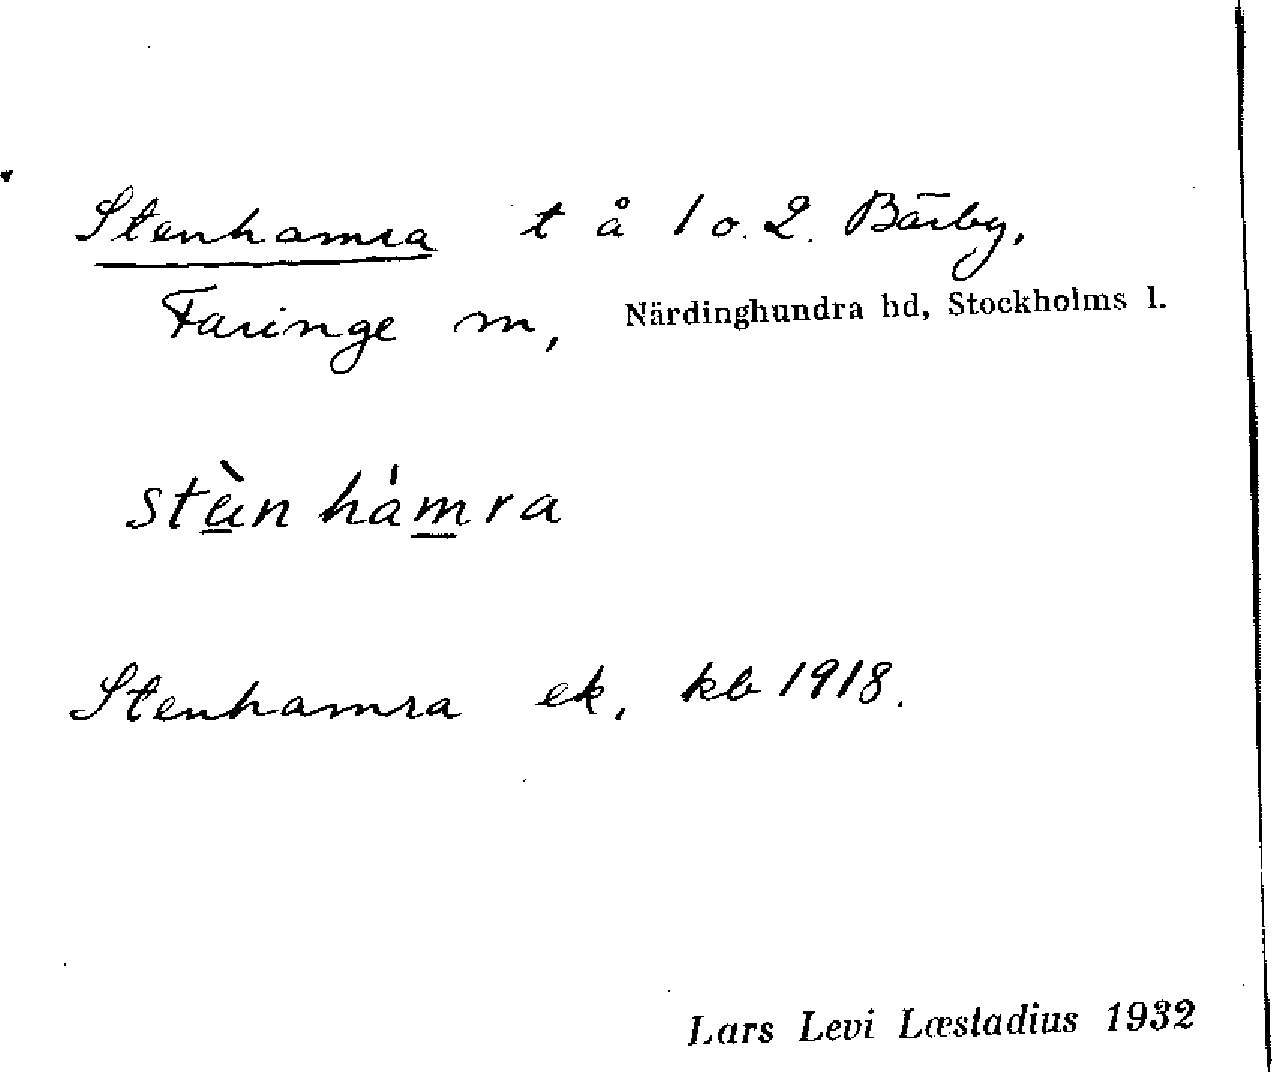 Stenhamra t å 1 o. 2. Bärby,
Faringe m, Närdinghundra hd, Stockholms l.
stèn hámra
Stenhamra ek, kb 1918.
Lars Levi Læstadius 1932